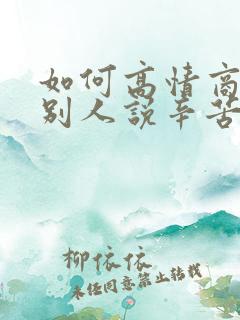 如何高情商
别人说辛苦
柳依依
未经同意禁止转载